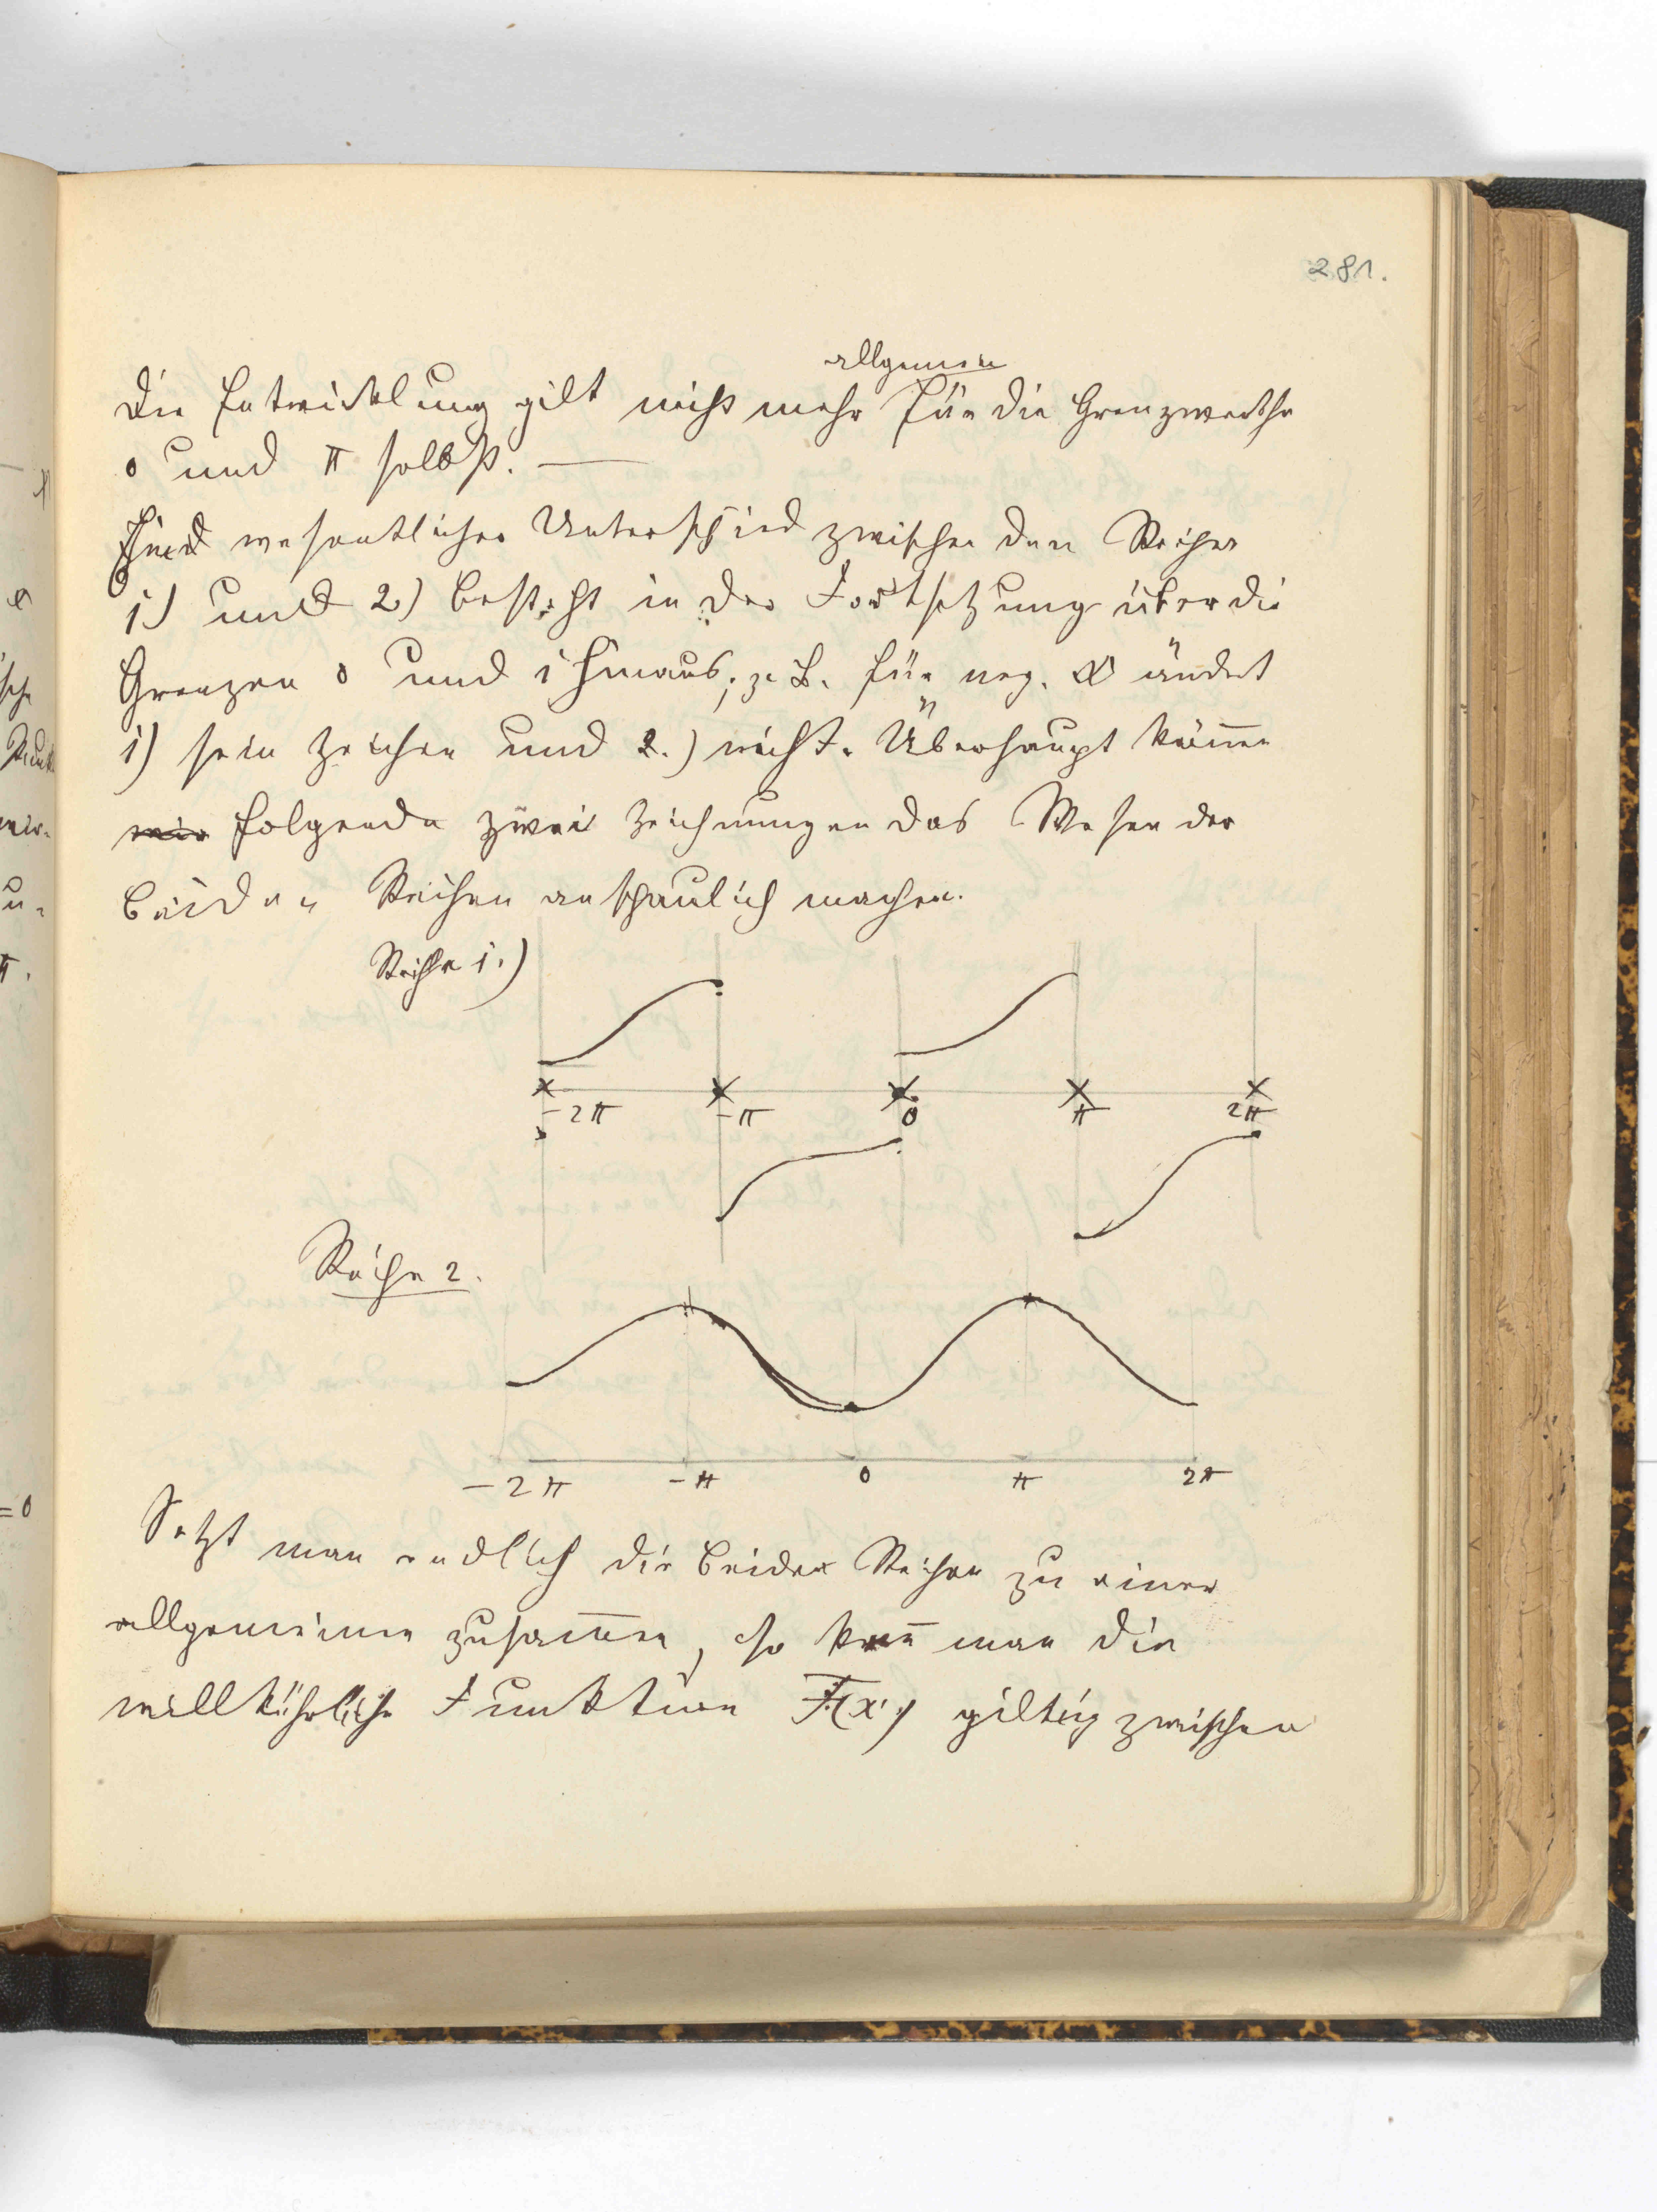 281.
allgemein
Die Entwicklung gilt nicht mehr für die Grenzwerthe
0 und π selbst. —
wesentlicher Unterschied zwischen den Reihen
1) und 2) besteht in der Fortsetzung über die
Grenzen 0 und 1 hinaus; z. B. für neg. x ändert
1) sein Zeichen und 2.) nicht. Überhaupt kön̄en
wir folgende zwei Zeichnungen das Wesen der
beiden Reihen anschaulich machen.
Reihe 1.)
-2π -π 0 π 2π
Reihe 2.
-2π -π 0 π 2π
Setzt man endlich die beiden Reihen zu einer
allgemeinen zusam̄en, so kan̄ man die
willkührliche Funktion F(x) giltig zwischen